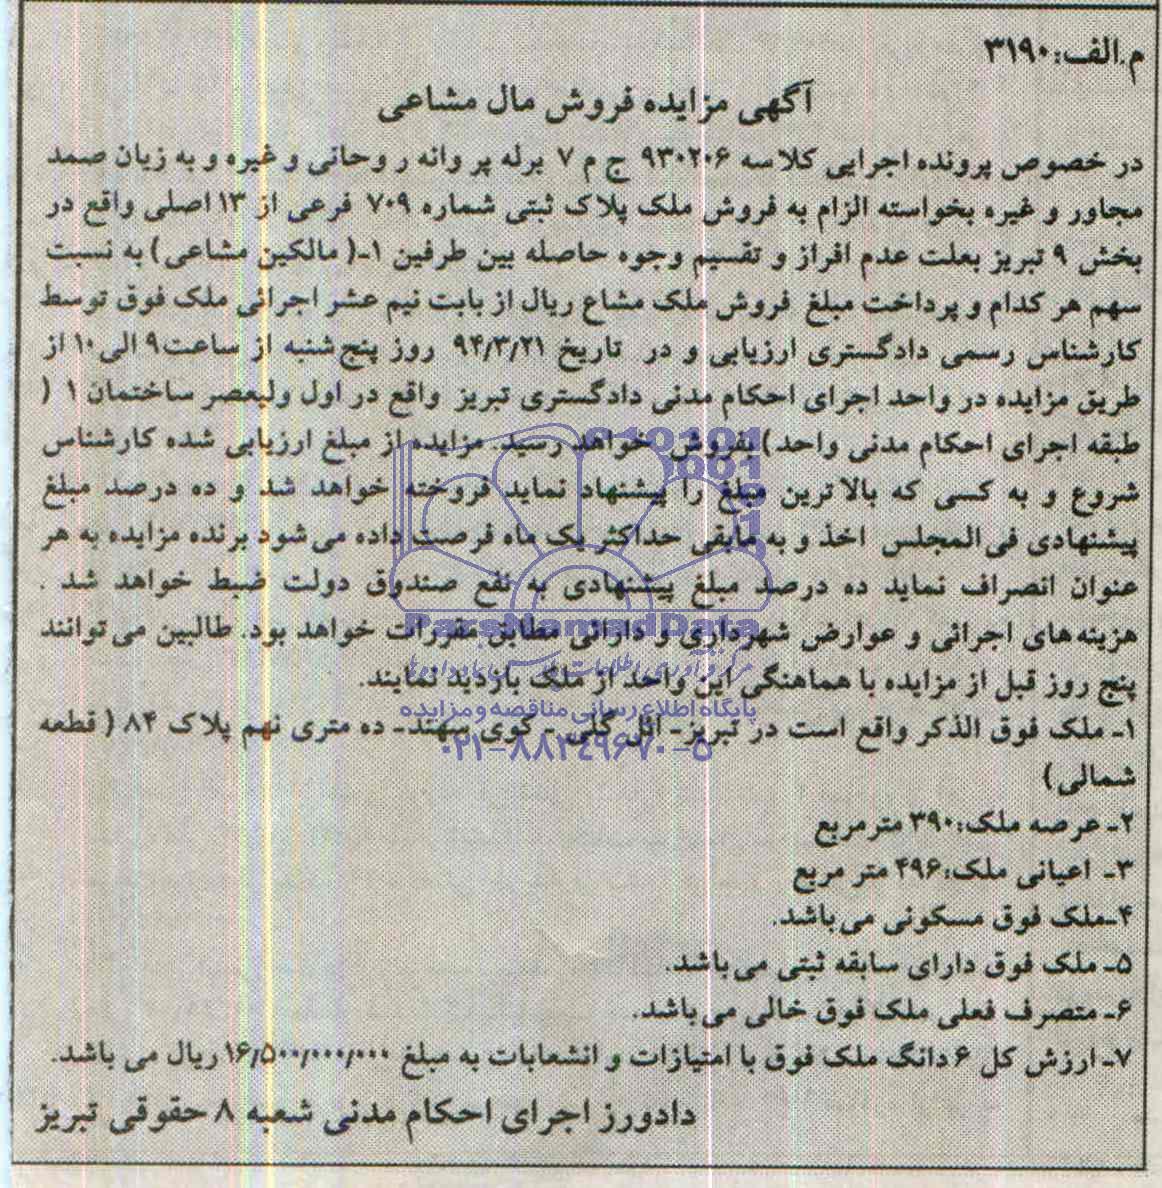 م.الف:۳۱۹۰
آگهی مزایده فروش مال مشاعی
در خصوص پرونده اجرایی کلاسه ۹۳۰۲۰۶ ج م ۷ برله پروانه روحانی و غیره و به زیان صمد
مجاور و غیره بخواسته الزام به فروش ملک پلاک ثبتی شماره ۷۰۹ فرعی از ۱۳ اصلی واقع در
بخش ۹ تبریز بعلت عدم افراز و تقسیم وجوه حاصله بین طرفین ۱-( مالکین مشاعی ) به نسبت
سهم هر کدام و پرداخت مبلغ فروش ملک مشاع ریال از بابت نیم عشر اجرائی ملک فوق توسط
کارشناس رسمی دادگستری ارزیابی و در تاریخ ۹۴/۳/۲۱ روز پنج شنبه از ساعت ۹ الی ۱۰ از
طریق مزایده در واحد اجرای احکام مدنی دادگستری تبریز واقع در اول ولیعصر ساختمان ۱ (
طبقه اجرای احکام مدنی واحد) بفروش خواهد رسید. مزایده از مبلغ ارزیابی شده کارشناس
شروع و به کسی که بالاترین مبلغ را پیشنهاد نماید فروخته خواهد شد و ده درصد مبلغ
پیشنهادی فی المجلس اخذ و به مابقی حداکثر یک ماه فرصت داده می شود برنده مزایده به هر
عنوان انصراف نماید ده درصد مبلغ پیشنهادی به نفع صندوق دولت ضبط خواهد شد .
هزینه های اجرائی و عوارض شهرداری و دارائی مطابق مقررات خواهد بود. طالبین می توانند
پنج روز قبل از مزایده با هماهنگی این واحد از ملک بازدید نمایند.
۱- ملک فوق الذکر واقع است در تبریز- ائل گلی - کوی سهند- ده متری نهم پلاک ۸۴ ( قطعه
شمالی)
۲- عرصه ملک:۳۹۰ متر مربع
۳- اعیانی ملک:۴۹۶ متر مربع
۴-ملک فوق مسکونی می باشد.
۵- ملک فوق دارای سابقه ثبتی می باشد.
۶- متصرف فعلی ملک فوق خالی می باشد.
۷- ارزش کل ۶ دانگ ملک فوق با امتیازات و انشعابات به مبلغ ۱۶/۵۰۰/۰۰۰/۰۰۰ ریال می باشد.
دادورز اجرای احکام مدنی شعبه ۸ حقوقی تبریز
ParsNamadData
پایگاه اطلاع رسانی مناقصه و مزایده
۰۲۱-۸۸۳۴۹۶۷۰-۵